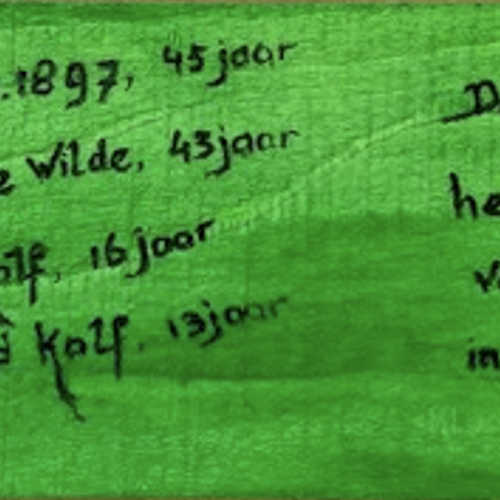 .1897, 45 jaar
e Wilde, 43 jaar
alf, 16 jaar
Kalf. 13 jaar
D
he
v
in